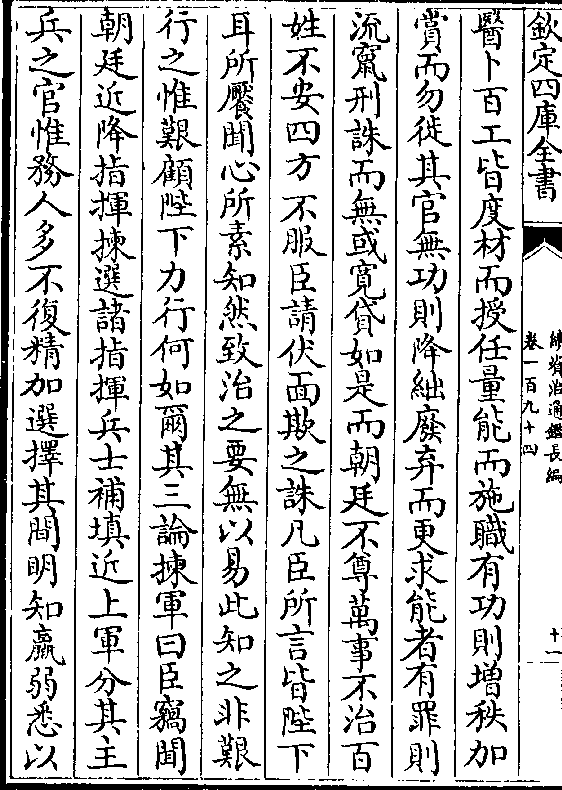 欽定四庫全書
續資治通鑑長編
卷一百九十四
十一
醫卜百工皆度材而授任量能而施職有功則增秩加
賞而勿徙其官無功則降絀廢弃而更求能者有罪則
流竄刑誅而無或寬貸如是而朝廷不尊萬事不治百
姓不安四方不服臣請伏面欺之誅凡臣所言皆陛下
耳所饜聞心所素知然致治之要無以易此知之非艱
行之惟艱顧陛下力行何如爾其三論揀軍曰臣竊聞
朝廷近降指揮揀選諸指揮兵士補填近上軍分其主
兵之官惟務人多不復精加選擇其間明知羸弱悉以